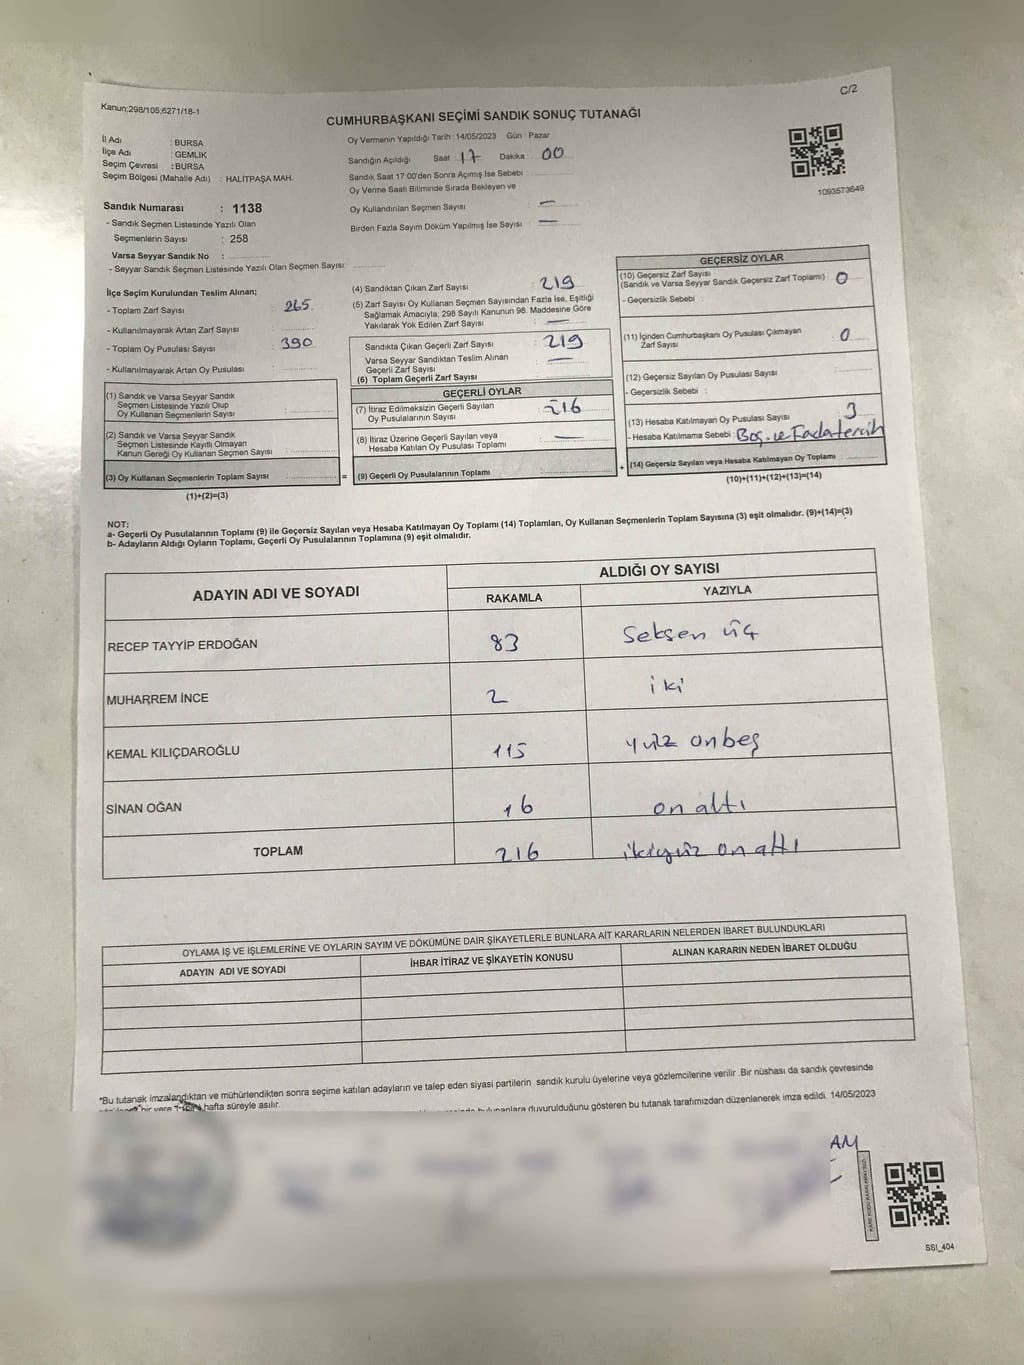 Kanun;298/105;6271/18-1
C/2
CUMHURBAŞKANI SEÇİMİ SANDIK SONUÇ TUTANAĞI
İl Adı : BURSA
İlçe Adı : GEMLİK
Seçim Çevresi : BURSA
Seçim Bölgesi (Mahalle Adı) : HALİTPAŞA MAH.
Sandık Numarası : 1138
- Sandık Seçmen Listesinde Yazılı Olan
Seçmenlerin Sayısı : 258
Varsa Seyyar Sandık No :
- Seyyar Sandık Seçmen Listesinde Yazılı Olan Seçmen Sayısı:
Oy Vermenin Yapıldığı Tarih : 14/05/2023 Gün : Pazar
Sandığın Açıldığı Saat : 17 Dakika : 00
Sandık Saat 17:00'den Sonra Açımış İse Sebebi :
Oy Verme Saati Bitiminde Sırada Bekleyen ve
Oy Kullandırılan Seçmen Sayısı : —
Birden Fazla Sayım Döküm Yapılmış İse Sayısı : —
1093573649
İlçe Seçim Kurulundan Teslim Alınan;
- Toplam Zarf Sayısı : 265
- Kullanılmayarak Artan Zarf Sayısı :
- Toplam Oy Pusulası Sayısı : 390
- Kullanılmayarak Artan Oy Pusulası :
(1) Sandık ve Varsa Seyyar Sandık
Seçmen Listesinde Yazılı Olup
Oy Kullanan Seçmenlerin Sayısı :
(2) Sandık ve Varsa Seyyar Sandık
Seçmen Listesinde Kayıtlı Olmayan
Kanun Gereği Oy Kullanan Seçmen Sayısı :
(3) Oy Kullanan Seçmenlerin Toplam Sayısı :
(1)+(2)=(3)
(4) Sandıktan Çıkan Zarf Sayısı : 219
(5) Zarf Sayısı Oy Kullanan Seçmen Sayısından Fazla İse, Eşitliği
Sağlamak Amacıyla; 298 Sayılı Kanunun 98. Maddesine Göre
Yakılarak Yok Edilen Zarf Sayısı : —
Sandıkta Çıkan Geçerli Zarf Sayısı : 219
Varsa Seyyar Sandıktan Teslim Alınan
Geçerli Zarf Sayısı : —
(6) Toplam Geçerli Zarf Sayısı
GEÇERLİ OYLAR
(7) İtiraz Edilmeksizin Geçerli Sayılan
Oy Pusulalarının Sayısı : 216
(8) İtiraz Üzerine Geçerli Sayılan veya
Hesaba Katılan Oy Pusulası Toplamı : —
= (9) Geçerli Oy Pusulalarının Toplamı :
GEÇERSİZ OYLAR
(10) Geçersiz Zarf Sayısı
(Sandık ve Varsa Seyyar Sandık Geçersiz Zarf Toplamı) : 0
- Geçersizlik Sebebi :
(11) İçinden Cumhurbaşkanı Oy Pusulası Çıkmayan
Zarf Sayısı : 0
(12) Geçersiz Sayılan Oy Pusulası Sayısı :
- Geçersizlik Sebebi :
(13) Hesaba Katılmayan Oy Pusulası Sayısı : 3
- Hesaba Katılmama Sebebi : Boş. ve Fazla tercih
+ (14) Geçersiz Sayılan veya Hesaba Katılmayan Oy Toplamı :
(10)+(11)+(12)+(13)=(14)
NOT:
a- Geçerli Oy Pusulalarının Toplamı (9) ile Geçersiz Sayılan veya Hesaba Katılmayan Oy Toplamı (14) Toplamları, Oy Kullanan Seçmenlerin Toplam Sayısına (3) eşit olmalıdır. (9)+(14)=(3)
b- Adayların Aldığı Oyların Toplamı, Geçerli Oy Pusulalarının Toplamına (9) eşit olmalıdır.
ADAYIN ADI VE SOYADI ALDIĞI OY SAYISI
RAKAMLA YAZIYLA
RECEP TAYYİP ERDOĞAN 83 Seksen üç
MUHARREM İNCE 2 iki
KEMAL KILIÇDAROĞLU 115 yüz onbeş
SİNAN OĞAN 16 on altı
TOPLAM 216 ikiyüz on altı
OYLAMA İŞ VE İŞLEMLERİNE VE OYLARIN SAYIM VE DÖKÜMÜNE DAİR ŞİKAYETLERLE BUNLARA AİT KARARLARIN NELERDEN İBARET BULUNDUKLARI
ADAYIN ADI VE SOYADI İHBAR İTİRAZ VE ŞİKAYETİN KONUSU ALINAN KARARIN NEDEN İBARET OLDUĞU
*Bu tutanak imzalandıktan ve mühürlendikten sonra seçime katılan adayların ve talep eden siyasi partilerin sandık kurulu üyelerine veya gözlemcilerine verilir .Bir nüshası da sandık çevresinde
bir yere hafta süreyle asılır.
duyurulduğunu gösteren bu tutanak tarafımızdan düzenlenerek imza edildi. 14/05/2023
AM
SSI_404